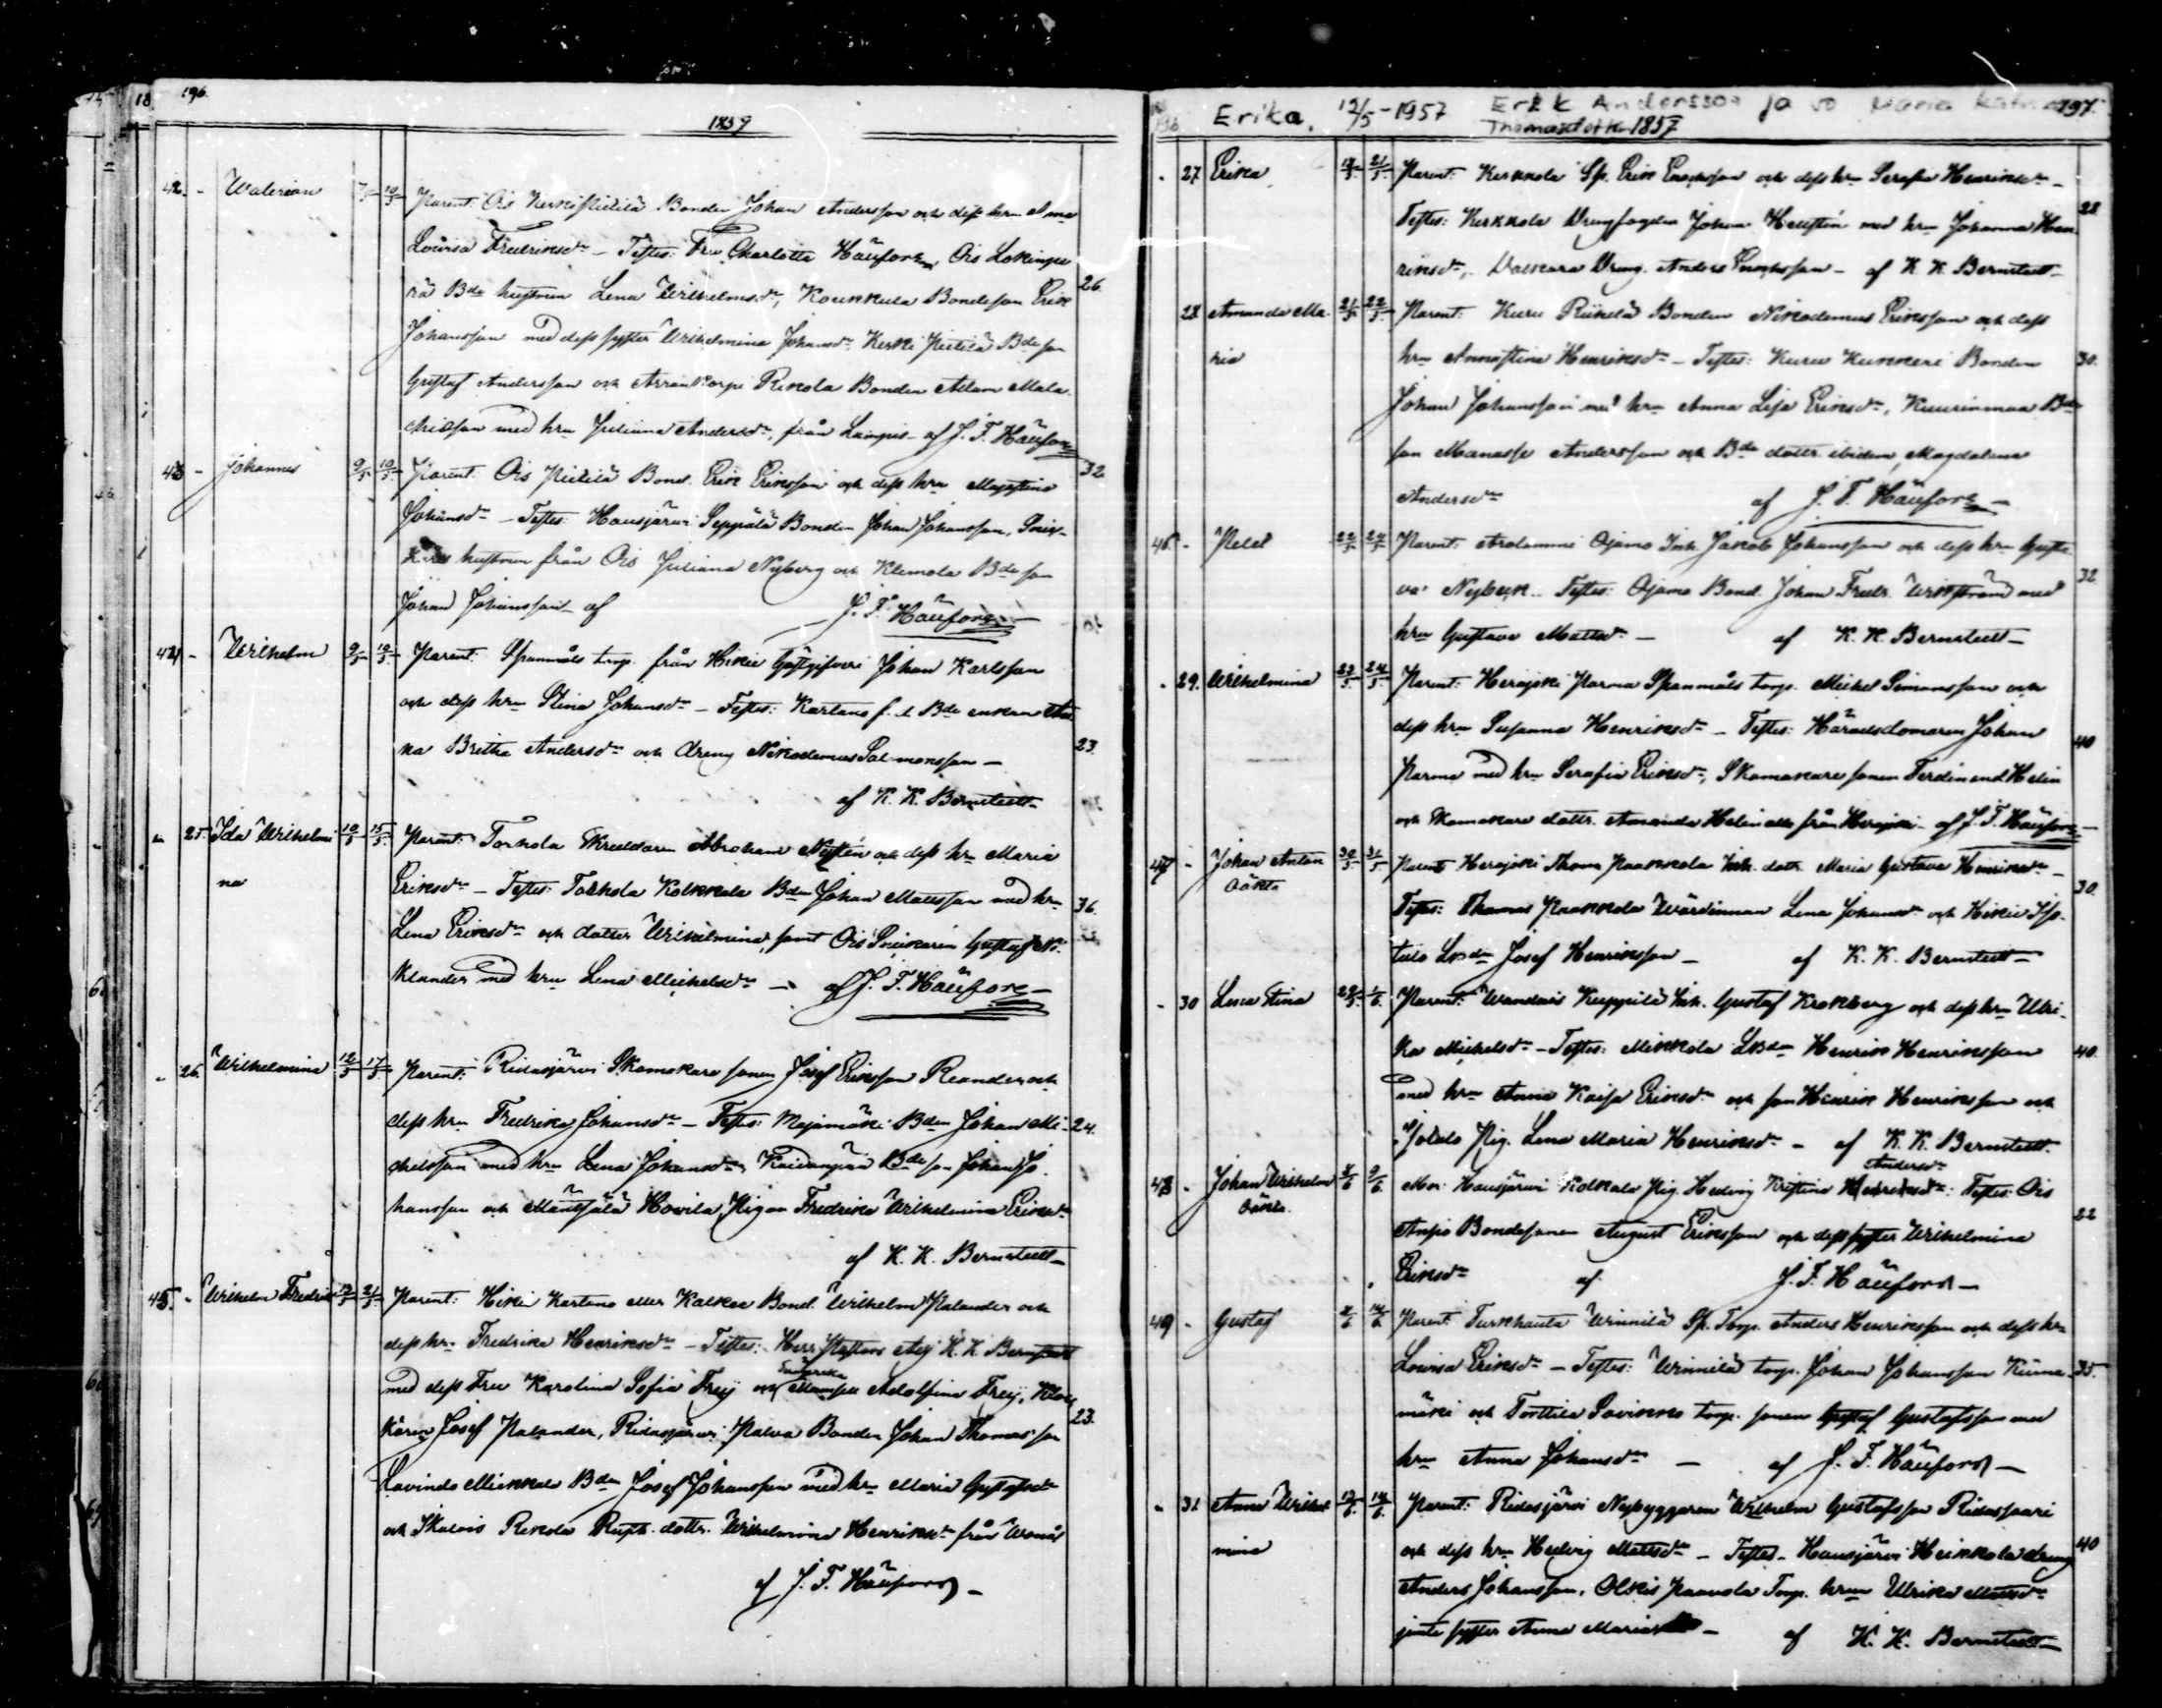 18 196.
1859
42. - Walerian 7/5 10/5 Parent: Ois Kerki Pietilä Bonden Johan Andersson och dess hru Anna
Lowisa Fredriksdr - Testes: Fru Charlotte Häüfors, Ois Lokinpe
rä Bde hustrun Lena Wilhelmsdr, Koukkula Bondeson Erik 26.
Johansson med dess syster Wilhelmina Johansdr Kerki Pietilä Bdeson
Gustaf Andersson och Arrankorpi Rekola Bonden Adam Mala
chiasson med hru Juliana Andersdr, från Lampis - af J. F. Häüfors
43 - Johannes 9/5 10/5 Parent: Ois Pietilä Bond. Erik Eriksson och dess hru Majastina 32
Johansdr - Testes: Hausjärvi Seppälä Bonden Johan Johansson, Snic-
kars hustrun från Ois Juliana Nyberg och Klemola Bdeson
Johan Johansson af J. F. Häüfors -
44 - Wilhelm 9/5 10/5 Parent: Spannmåls torp. från Hikie Gästgifveri Johan Karlsson
och dess hru Stina Johansdr - Testes: Kartano f. d Bde enkan An
na Britha Andersdr och dreng Nikodemus Salomonsson - 23.
af K. K. Bernstedt
- 25. Ida Wilhelmi 10/5 15/5 Parent: Torhola Skreddaren Abraham Nysten och dess hru Maria
na Eriksdr - Testes: Torhola Kolkkala Bden Johan Mattsson med hru 36.
Lena Eriksdr och dotter Wilhelmina, samt Ois Snickaren Gustaf Ni-
klander med hru Lena Michelsdr - af J. F. Häüfors -
- 26. Wilhelmina 12/5 17/5 Parent: Ridasjärvi Skomakare sonen Josef Eriksson Reander och
dess hru Fredrika Johansdr - Testes: Majamäki Bden Johan Mi- 24.
chelsson med hru Lena Johansdr, Bdeson Johan Jo-
hansson och Mäntsälä Howila Pigan Fredrika Wilhelmina Eriksdr
af K. K. Bernstedt -
45. - Wilhelm Fredrik 21/5 Parent: Hikie Kartano eller Kalkea Bond. Wilhelm Palander och
dess hru Fredrika Henriksdr - Testes: Herr Pastors Adj K. K. Bernstedt
med dess Fru Karolina Sofia Frej och Mamsell Adolfina Frej, Kloc
karen Josef Palander, Ridasjärvi Palva Bonden Johan Thomasson 23.
Lavinto Miekkala Bden Josef Johansson med hru Maria Gustafsdr
och Skalois Rekola Rusth. dottr. Wilhelmina Henriksdr från Wånå
af J. F. Häüfors -
196 Erika, 12/5 - 1957 Erkk Andersson ja vo Maria Katr 197.
Thomasdott 1857
- 27. Erika 18/5 21/5 Parent: Kerkkola Sp. Erik Enoksson och dess hru Serafia Henriksdr -
Testes: Kerkkola Drengfogden Johan Hensten med hru Johanna Hen 28
riksdr, Valkara Dreng. Anders Enoksson - af K. K. Bernstedt -
28 Amanda Ma 21/5 22/5 Parent: Kuru Riikilä Bonden Nikodemus Eriksson och dess
ria hru Annastina Henriksdr - Testes: Kuru Kukkeri Bonden 30.
Johan Johansson med hru Anna Lisa Eriksdr, Kuurinmaa Bde
son Manasse Andersson och Bde dottr. ibidem, Magdalena
Andersdr af J. F. Häüfors -
46. - 22/5 24/5 Parent: Arolammi Ojamo Inh. Jakob Johansson och dess hru Gusta
va Nybeck. Testes: Ojamo Bond. Johan Fredr. Wikström med 32.
hru Gustava Mattsdr - af K. K. Bernstedt -
- 29. Wilhelmina 23/5 24/5 Parent: Herajoki Parma Spanmåls torp. Michel Simonsson och
dess hru Susanna Henriksdr - Testes: Häradsdomaren Johan 40
Parma med hru Serafia Eriksdr, Skomakare sonen Ferdinand Helin
och Skomakare dottr. Amanda Helin alla från Herajoki - af J. F. Häüfors -
47 - Johan Anton 30/5 31/5 Parent Herajoki Thoma Paakkola Inh. dottr. Maria Gustava Henriksdr -
Oäkta 30.
Testes: Thomas Paakkola Wärdinnan Lena Johansdr och Hikie
tulo Josef Henriksson - af K. K. Bernstedt -
- 30 Lena Stina 29/5 1/6 Parent: Wandais Kuppilä Inh. Gustaf Krokberg och dess hru Ulri-
ka Michelsdr - Testes: Mikkola Henrik Henriksson 40.
med hru Anna Kaisa Eriksdr och son Henrik Henriksson och
Jotalo Pig. Lena Maria Henriksdr - af K. K. Bernstedt.
48 - Johan Wilhelm 8/6 9/6 Mor: Hausjärvi Kolkala Pig. Hedvig Kristina Andersdr Henriksdr: Testes: Ois
Oäkta. 22
Anjio Bondesonen August Eriksson och dess syster Wilhelmina
Eriksdr af J. F. Häüfors -
49 - Gustaf 8/6 14/6 Parent: Turkhauta Winnilä Sp. Torp. Anders Henriksson och dess hru
Lowisa Eriksdr - Testes: Winnilä torp. Johan Johansson Kiima- 35.
mäki och Torttila Savikko torp. sonen Gustaf Gustafsson med
hru Anna Johansdr - af J. F. Häüfors -
- 31 Anna Wilhel 12/6 14/6 Parent: Ridasjärvi Nybyggaren Wilhelm Gustafsson Ridassaari
mina och dess hru Hedvig Mattsdr - Testes - Hausjärvi Heikkola dreng 40
Anders Johansson, Olkis Paavola Torp. hru Ulrika Mattsdr
jemte syster Anna Maria - af K. K. Bernstedt -